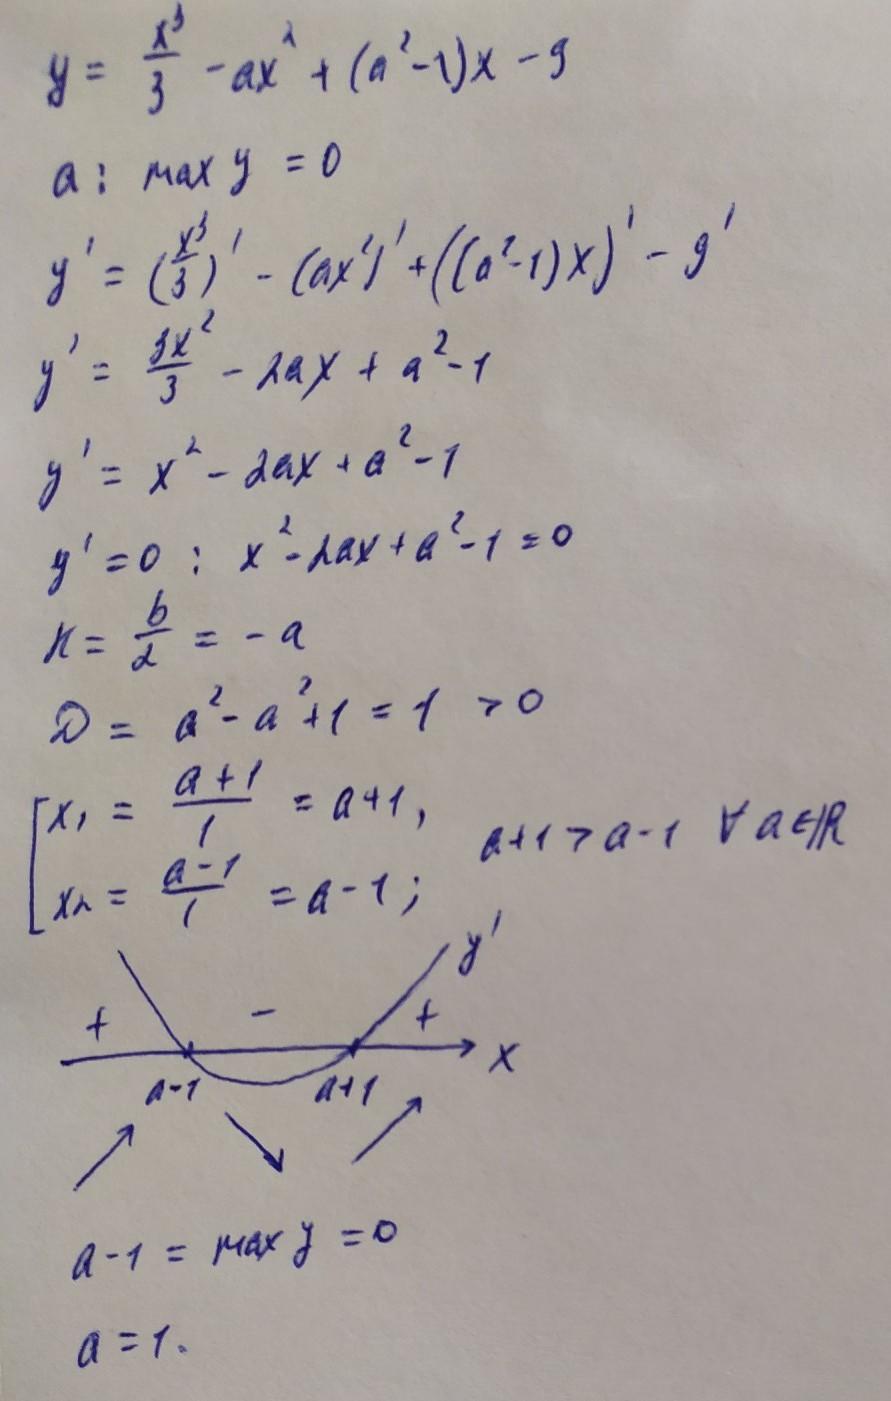 y = x³/3 - ax² + (a²-1)x - 9
a : max y = 0
y' = (x³/3)' - (ax²)' + ((a²-1)x)' - 9'
y' = 3x²/3 - 2ax + a²-1
y' = x² - 2ax + a²-1
y' = 0 : x²-2ax+a²-1 = 0
K = b/2 = -a
D = a²-a²+1 = 1 > 0
[ x₁ = (a+1)/1 = a+1,
a+1 > a-1 ∀ a∈ℝ
x₂ = (a-1)/1 = a-1;
y'
+ - +
x
a-1 a+1
a-1 = max y = 0
a = 1.